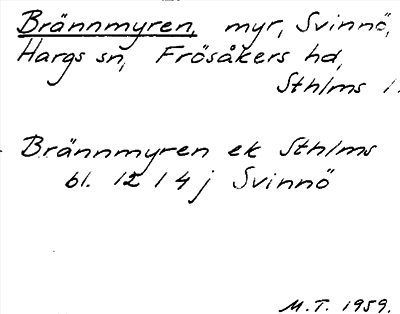 Brännmyren, myr, Svinnö,
Hargs sn, Frösåkers hd,
Sthlms l.
Brännmyren ek Sthlms
bl. 12 I 4 j Svinnö
M.T. 1959.